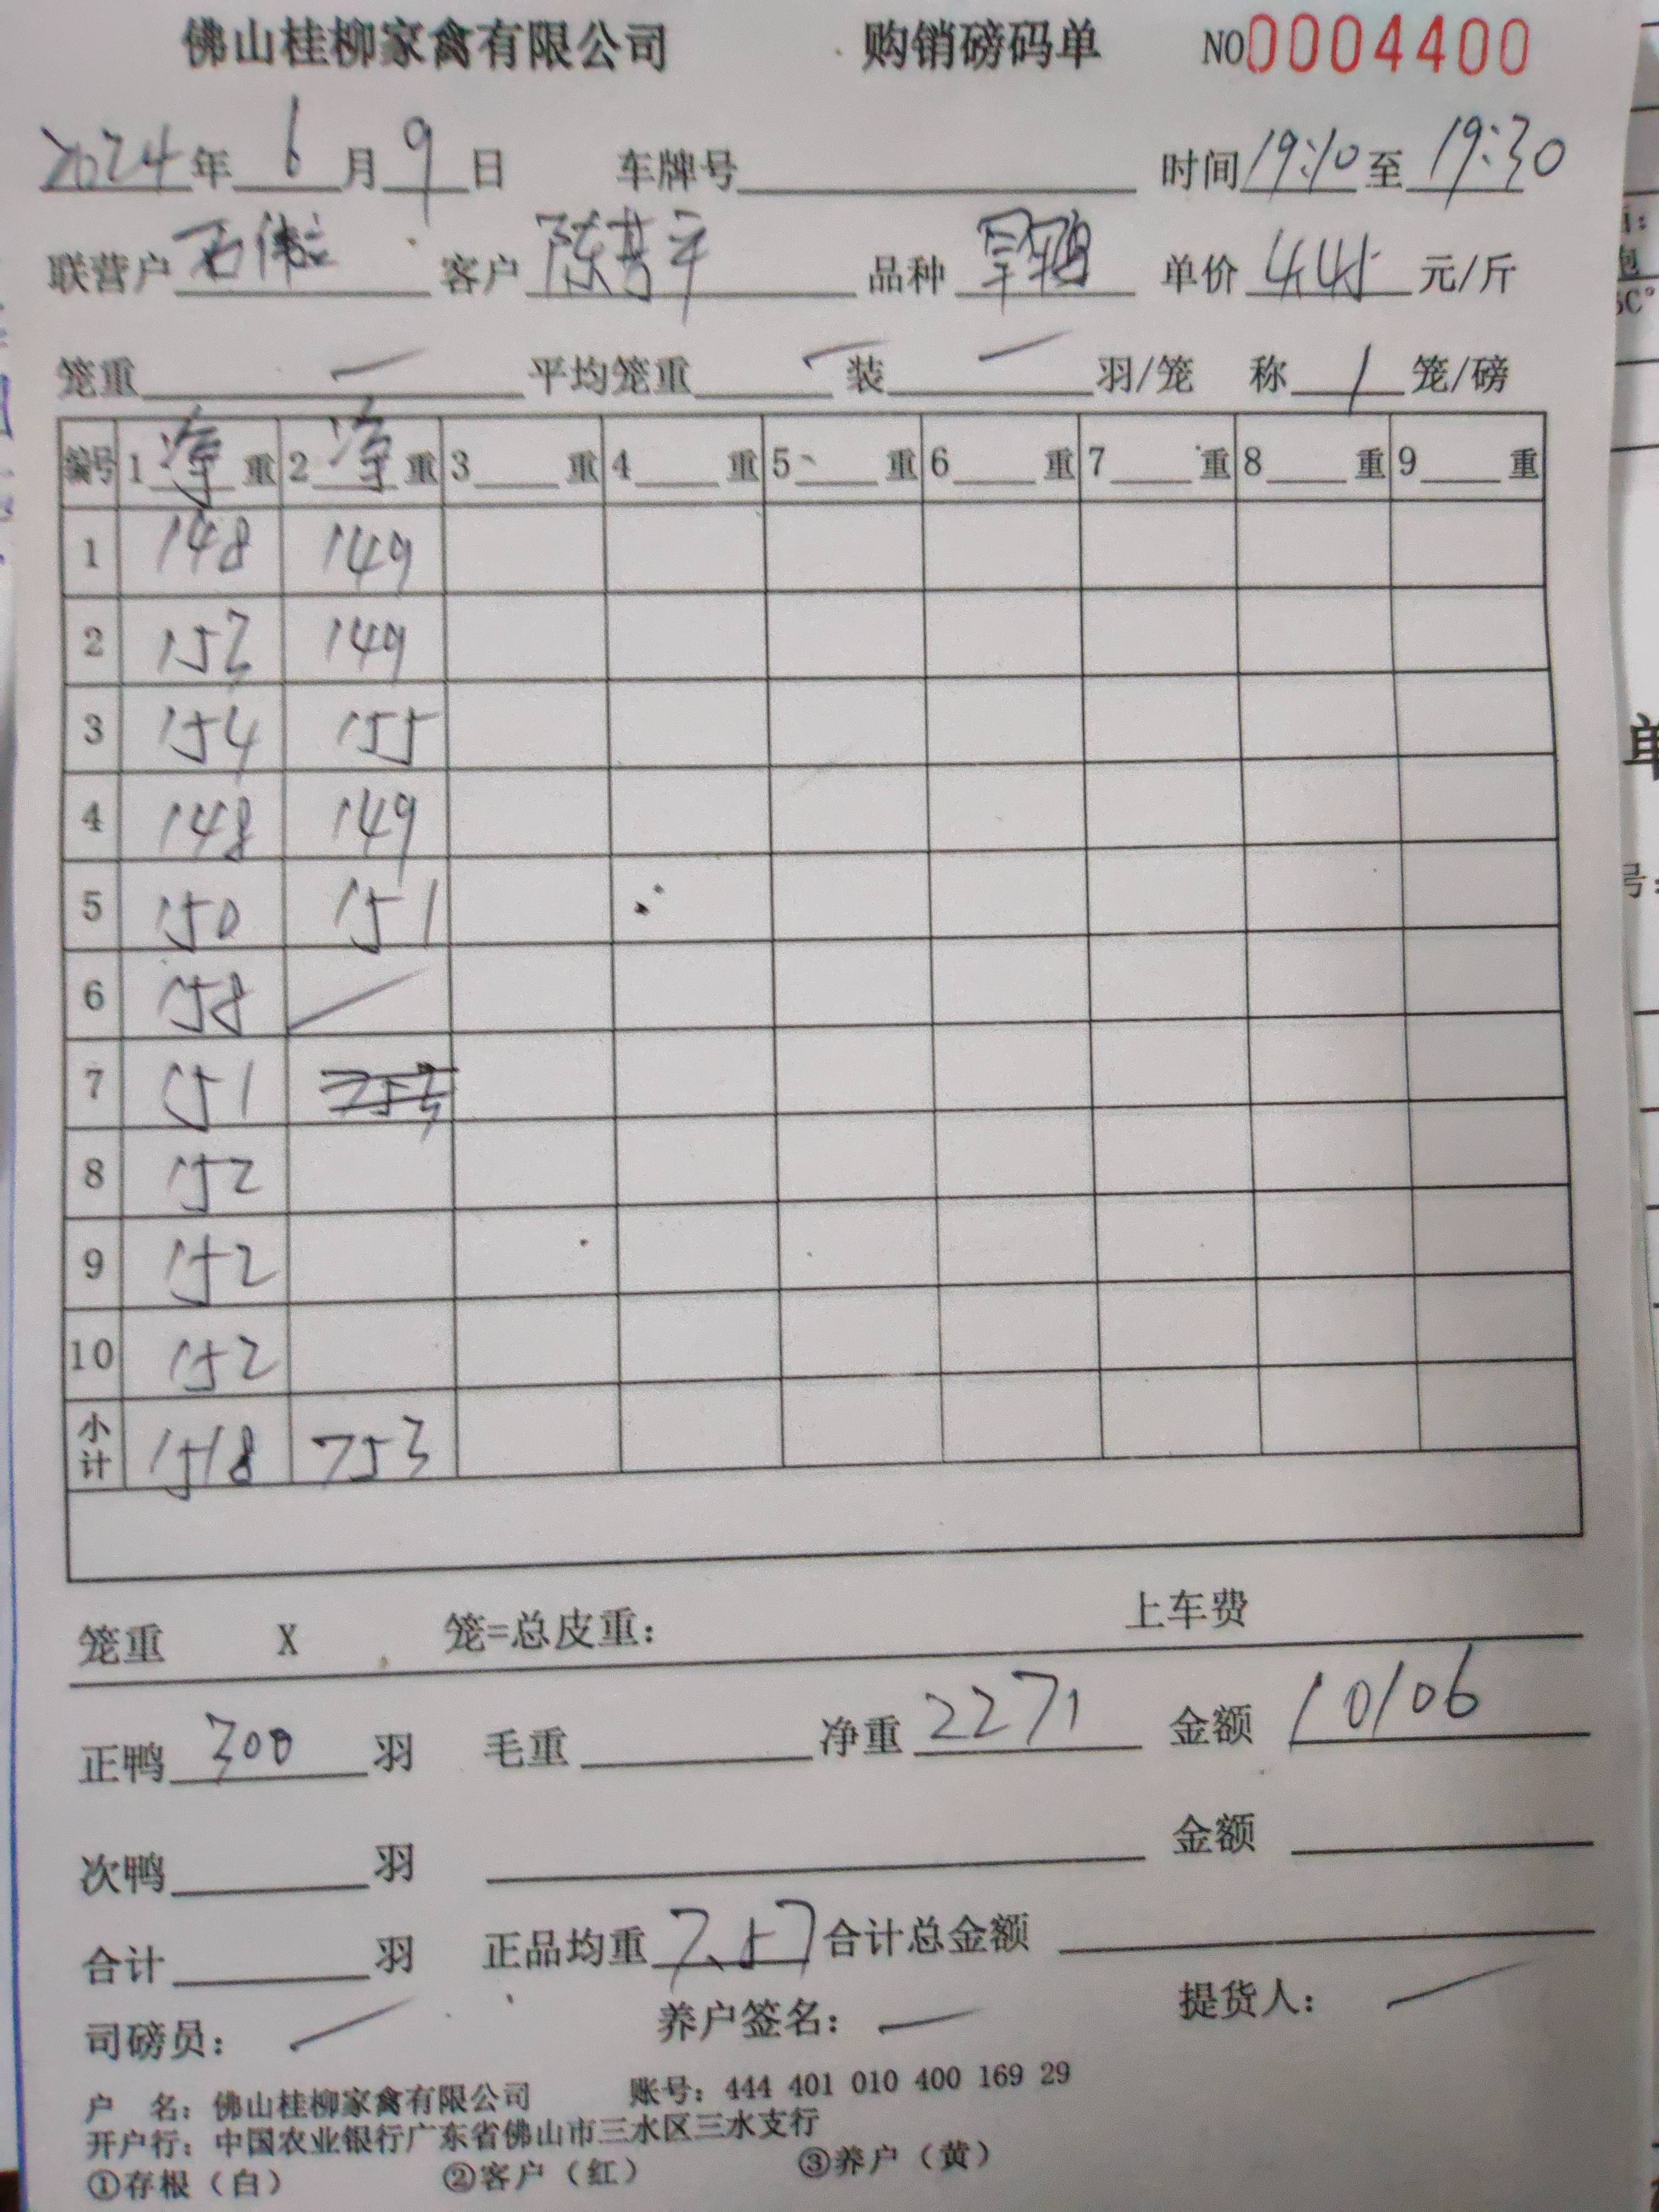 佛山桂柳家禽有限公司 购销磅码单 NO0004400
2024年6月9日 车牌号 时间19:10至19:30
联营户 石伟 客户 陈 平 品种 旱鸭 单价 4.45 元/斤
笼重 一 平均笼重 一 装 一 羽/笼 称 1 笼/磅
编号 1净重 2净重 3 重 4 重 5 重 6 重 7 重 8 重 9 重
1 148 149
2 153 149
3 154 155
4 148 149
5 150 151
6 158
7 151
8 152
9 152
10 152
小计 1518 753
笼重 X 笼=总皮重: 上车费
正鸭 300 羽 毛重 净重 2271 金额 10106
次鸭 羽 金额
合计 羽 正品均重 7.57 合计总金额
司磅员: 养户签名: 提货人:
户 名: 佛山桂柳家禽有限公司 账号: 444 401 010 400 169 29
开户行: 中国农业银行广东省佛山市三水区三水支行
①存根（白） ②客户（红） ③养户（黄）